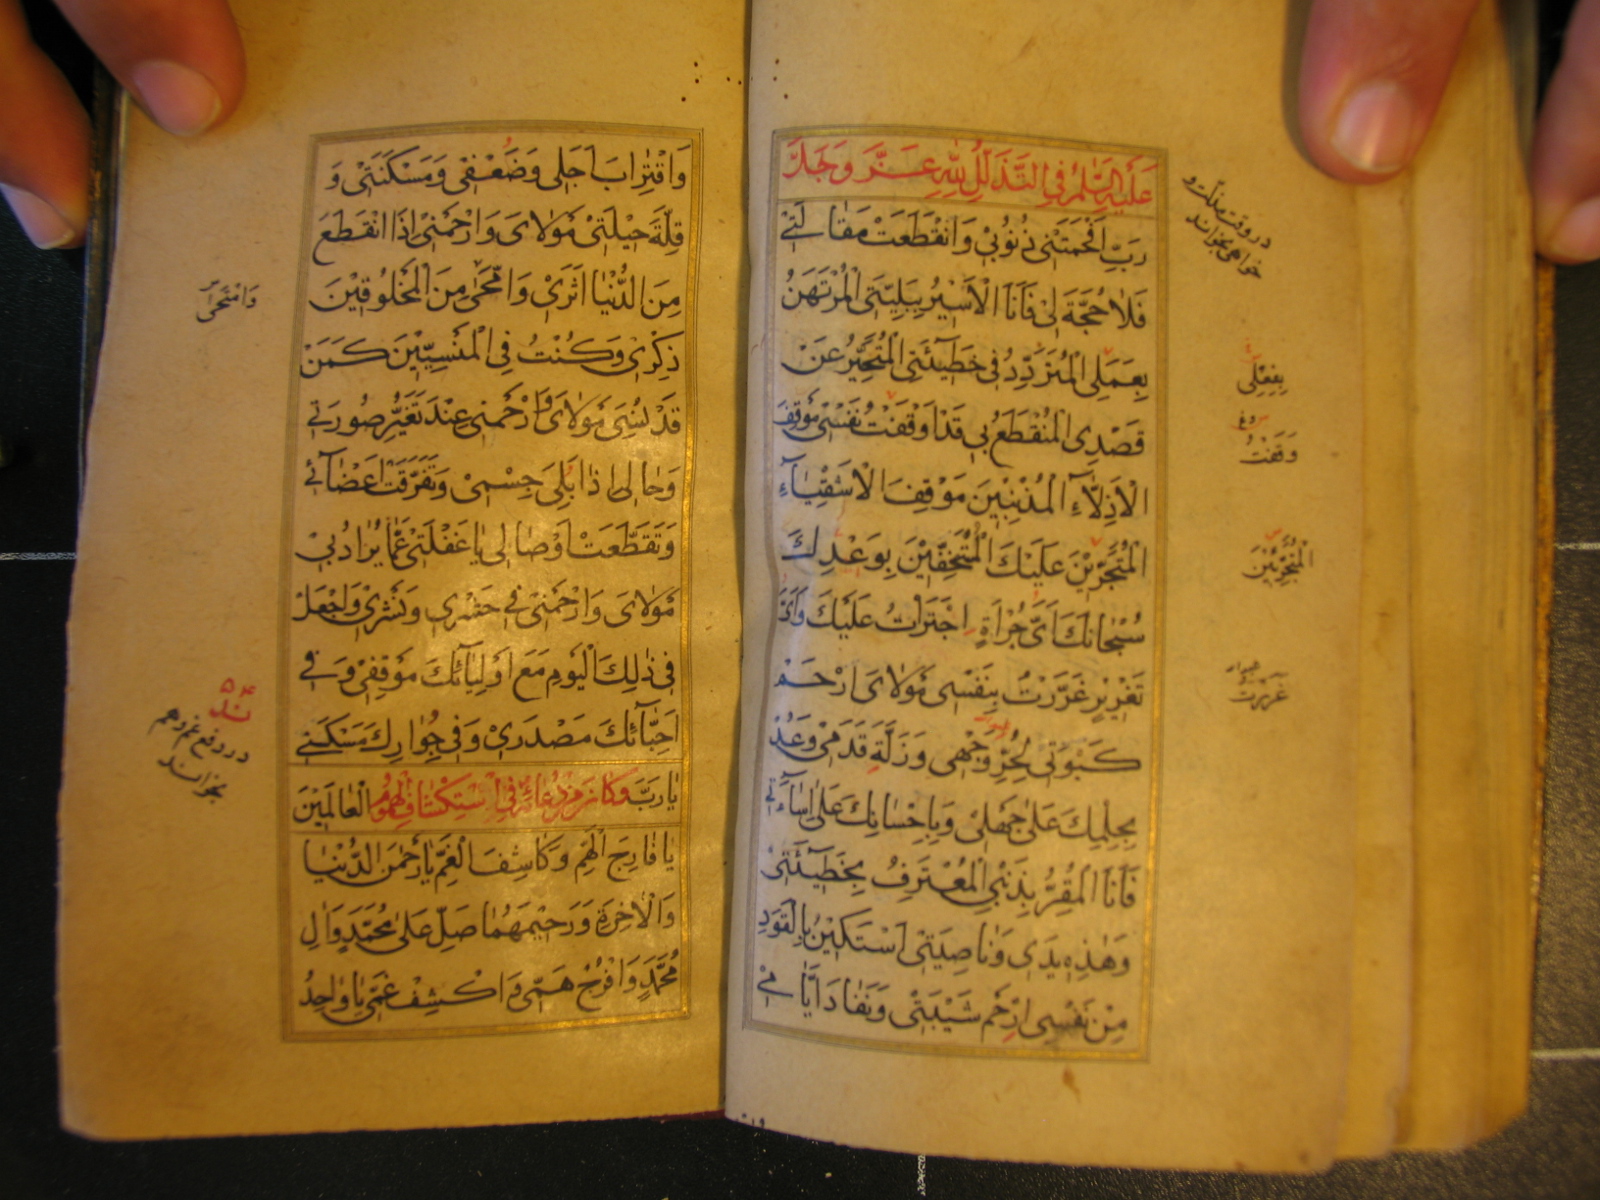 عَلَيْهِ السَّلٰمُ فِي التَّذَلُّلِ لِلّٰهِ عَزَّ وَجَلَّ
رَبِّ اَفْحَمَتْنى ذُنُوبى وَانْقَطَعَتْ مَقٰالَتى
فَلٰا حُجَّةَ لى فَاَنَا الْاَسيْرُ بِبَلِيَّتى الْمُرْتَهَنُ
بِعَمَلى الْمُتَرَدِّدُ فى خَطيٓئَتى الْمُتَحَيِّرُ عَنْ
قَصْدِى الْمُنْقَطَعُ بى قَدْ اَوْقَفْتُ نَفْسى مَوْقِفَ
الْاَذِلّٰاءِ الْمُذْنِبيْنَ مَوْقِفَ الْاَشْقِيٰآءِ
الْمُتَجَرّيْنَ عَلَيْكَ الْمُسْتَخِفّيْنَ بِوَعْدِكَ
سُبْحٰانَكَ اَىَّ جُرْاَةٍ اجْتَرَاْتُ عَلَيْكَ وَاَىَّ
تَغْريْرٍ غَرَّرْتُ بِنَفْسى مَوْلٰاىَ ارْحَمْ
كَبْوَتى لِحُرِّ وَجْهى وَزَلَّةِ قَدَمى وَعُدْ
بِحِلْمِكَ عَلىٰ جَهْلى وَبِاِحْسٰانِكَ عَلىٰ اِسٰاۤءَتى
فَاَنَا الْمُقِرُّ بِذَنْبى الْمُعْتَرِفُ بِخَطيٓئَتى
وَهٰذِهِ يَدى وَنٰاصِيَتى اَسْتَكيْنُ بِالْقَوَدِ
مِنْ نَفْسى ارْحَمْ شَيْبَتى وَنَفٰادَ اَيّٰامى
در وقت مذلت و
خواهى بخواند
بِفِعْلى
وَقَفْتُ
الْمُتَجَرِّئيْنَ
غَرَرْتُ
وَاقْتِرٰابَ اَجَلى وَضَعْفى وَمَسْكَنَتى وَ
قِلَّةَ حيْلَتى مَوْلٰاىَ وَارْحَمْنى اِذَا انْقَطَعَ
مِنَ الدُّنْيٰا اَثَرى وَامَّحىٰ مِنَ الْمَخْلُوقيْنَ
ذِكْرى وَكُنْتُ فِى الْمَنْسِيّيْنَ كَمَنْ
قَدْ نُسِىَ مَوْلٰاىَ وَارْحَمْنى عِنْدَ تَغَيُّرِ صُورَتى
وَحٰالى اِذٰا بَلِىَ جِسْمى وَتَفَرَّقَتْ اَعْضٰآئى
وَتَقَطَّعَتْ اَوْصٰالى يٰا غَفْلَتى عَمّٰا يُرٰادُ بى
مَوْلٰاىَ وَارْحَمْنى فى حَشْرى وَنَشْرى وَاجْعَلْ
فى ذٰلِكَ الْيَوْمِ مَعَ اَوْلِيٰآئِكَ مَوْقِفى وَفى
اَحِبّٰآئِكَ مَصْدَرى وَفى جِوٰارِكَ مَسْكَنى
يٰا رَبَّ وَكٰانَ مِنْ دُعٰائِهِ فِى اسْتِكْشٰافِ الْهُمُومِ الْعٰالَميْنَ
يٰا فٰارِجَ الْهَمِّ وَكٰاشِفَ الْغَمِّ يٰا رَحْمٰنَ الدُّنْيٰا
وَالْاٰخِرَةِ وَرَحيْمَهُمٰا صَلِّ عَلىٰ مُحَمَّدٍ وَاٰلِ
مُحَمَّدٍ وَافْرُجْ هَمّى وَاكْشِفْ غَمّى يٰا وٰاحِدُ
وَامْتَحىٰ
۵۴
ند
در دفع غم و هم
بخواند